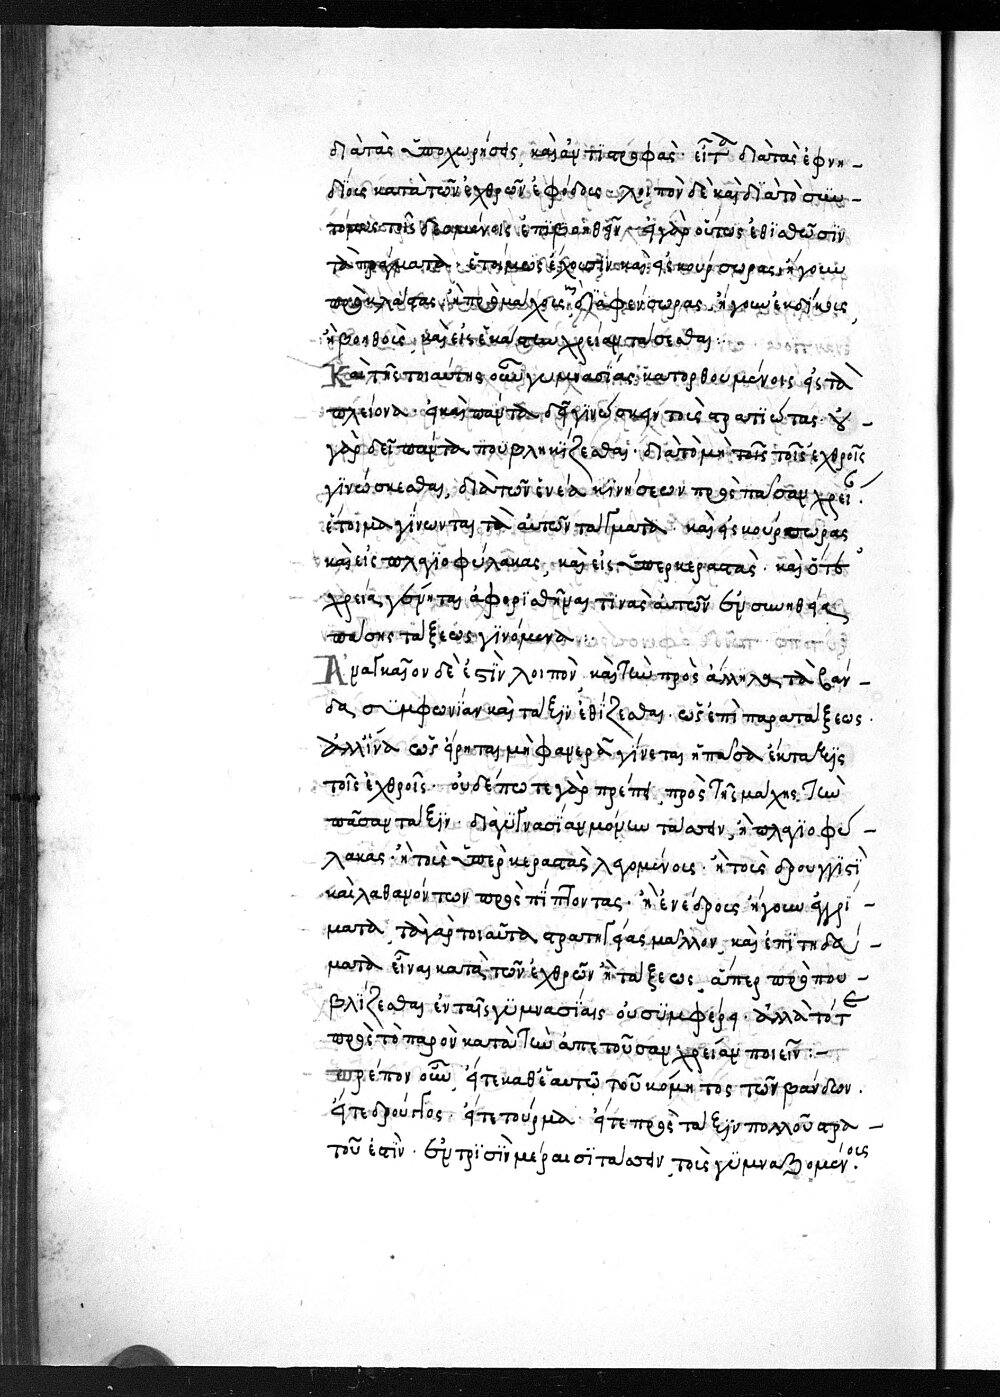 διὰ τὰς ὑποχωρήσεις, καὶ ἀντιστροφάς· εἶτα διὰ τὰς ἐφνη-
δίους κατὰ τῶν ἐχθρῶν ἐφόδους· λοιπὸν δὲ καὶ διὰ τὸ συν-
τόμως τοῖς δεομένοις ἐπιβοηθεῖν· εἰ γὰρ οὕτως ἐθισθῶσιν
τὰ τάγματα· ἑτοίμως ἔχουσιν καὶ εἰς κούρσωρας, ἤγουν
προκλάστας, ἢ προμάχους, ἢ δὶ᾽φένσωρας, ἤγουν ἐκδίκους,
ἢ βοηθοὺς, καὶ εἰς ἑκάστην χρείαν τάσσεσθαι:
Καὶ τῆς τοιαύτης οὖν γυμνασίας κατορθουμένοις εἰς τὰ
πλείονα· εἰ καὶ πάντα δεῖ γινώσκειν τοὺς στρατιώτας· οὐ
γὰρ δεῖ πάντα πουβληκίζεσθαι· διὰ τὸ μὴ τοῖς τοῖς ἐχθροῖς
γινώσκεσθαι, διὰ τῶν ἐννέα κινήσεων πρὸς πᾶσαν χρεί
ἕτοιμα γίνωνται τὰ αὐτῶν τάγματα· καὶ εἰς κούρσωρας
καὶ εἰς πλαγιοφύλακας, καὶ εἰς ὑπερκεραστὰς· καὶ ὅτε
χρεία γένηται ἀφορισθῆναι τινὰς αὐτῶν ἐν συνηθείᾳ
πάσης τάξεως γινόμενα:
Ἀναγκαῖον δὲ ἐστὶν λοιπὸν, καὶ τὴν πρὸς ἄλληλα τὰ βάν-
δα συμφωνίαν καὶ τάξιν ἐθίζεσθαι· ὡς ἐπὶ παρατάξεως·
ἀλλ᾽ ἵνα ὡς εἴρηται μὴ φανερὰ γίνεται ἡ πᾶσα ἔκταξις
τοῖς ἐχθροῖς· οὐδέποτε γὰρ πρέπει, πρὸς τῆς μάχης τὴν
πᾶσαν τάξιν· διὰ γυμνασίαν μόνην τάσσειν, ἢ πλαγιοφύ-
λακας· ἢ τοὺς ὑπερκεραστὰς λεγομένους· ἢ τοὺς δρουγγιστὶ
καὶ λαθανόντων προσπίπτοντας· ἢ ἐνέδρους ἤγουν ἐγκρύ-
ματα, τὰ γὰρ τοιαῦτα στρατηγίας μᾶλλον, καὶ ἐπιτηδεύ-
ματα εἶναι κατὰ τῶν ἐχθρῶν ἢ τάξεως, ἅπερ προπου-
βλίζεσθαι ἐν ταῖς γυμνασίαις οὐ συμφέρει· ἀλλὰ τότε
πρὸς τὸ παρὸν κατὰ τὴν ἀπετοῦσαν χρείαν ποιεῖν:-
πρέπον οὖν, εἴτε καθ᾽ ἑαυτὸ τοῦ κόμητος τῶν βάνδων·
εἴτε δροῦγγος· εἴτε τούρμα· εἴτε πρὸς τάξιν πολλοῦ στρα-
τοῦ ἐστὶν· ἐν τρισὶν μέραις τάσσειν, τοὺς γυμναζομένοις·